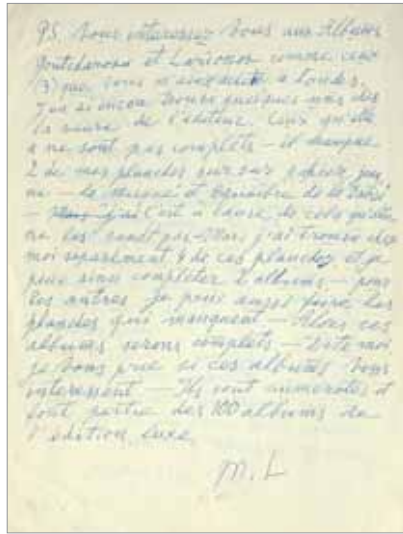 P.S. Vous interessez vous aux Albums
Gontcharova et Larionov comme ceux
(3) que vous a Londr.
J'en ai encor trouvé quelques uns chez
la de l'éditeur. Ceux qu'elle
a ne sont pas complets – il manque
2 de mes planches sur papier
ne – la et de la
– c'est a cause de cela qu'elle
ne les vend pas – Mais j'ai trouvé chez
moi separement 4 de ces planches et je
peux ainsi completer 2 albums – pour
les autres je peux aussi faire les
planches qui manquent – Alors ces
albums serons complets – Dite moi
je vous prie si ces albums vous
interessent – Ils sont numerotes et
font partie des 100 albums de
l'edition luxe
M. L